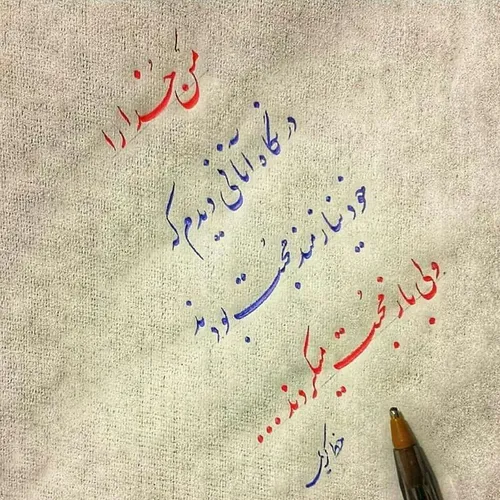 من خدا را
در نگاه آنانی دیدم که
خود نیازمند محبت بودند
ولی باز محبت میکردند...